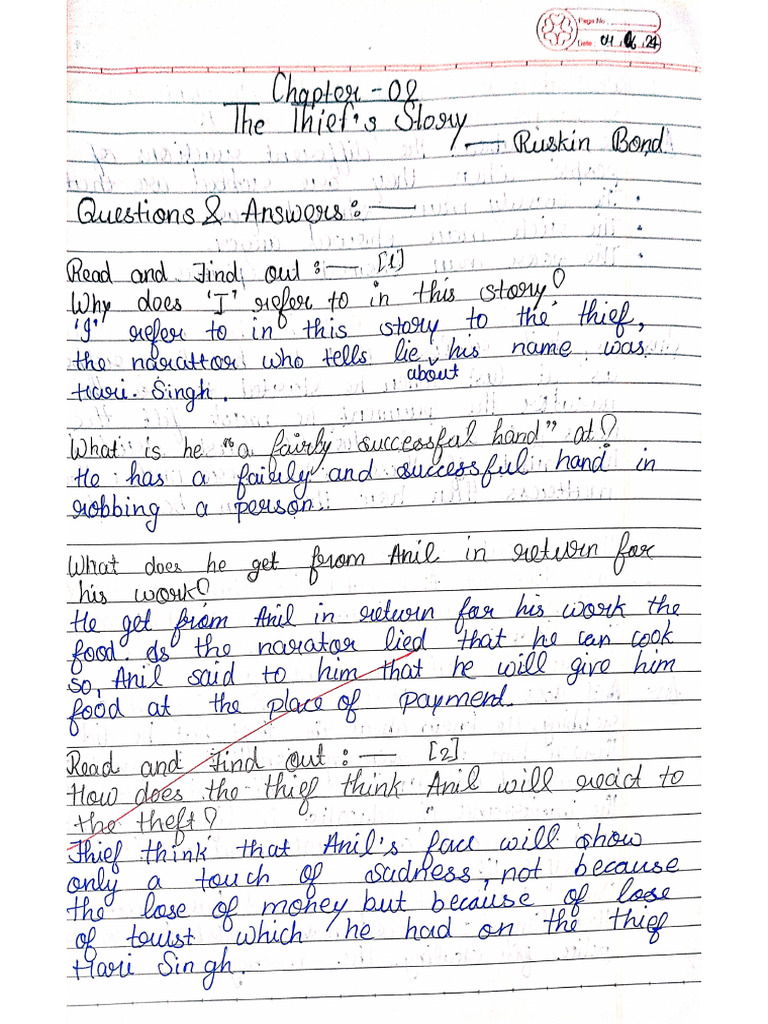 Page No.
Date: 04 06 24
Chapter - 02
The Thief's Story
— Ruskin Bond
Questions & Answers :—
Read and Find out :— [1]
Why does 'I' refer to in this story?
'I' refer to in this story to the thief,
the narattor who tells lie about his name was
Hari Singh.
What is he "a fairly successful hand" at?
He has a fairly and successful hand in
robbing a person.
What does he get from Anil in return for
his work?
He get from Anil in return for his work the
food. As the narator lied that he can cook
so, Anil said to him that he will give him
food at the place of payment.
Read and Find out :— [2]
How does the thief think Anil will react to
the theft?
Thief think that Anil's face will show
only a touch of sadness, not because
the lose of money but because of lose
of trust which he had on the thief
Hari Singh.